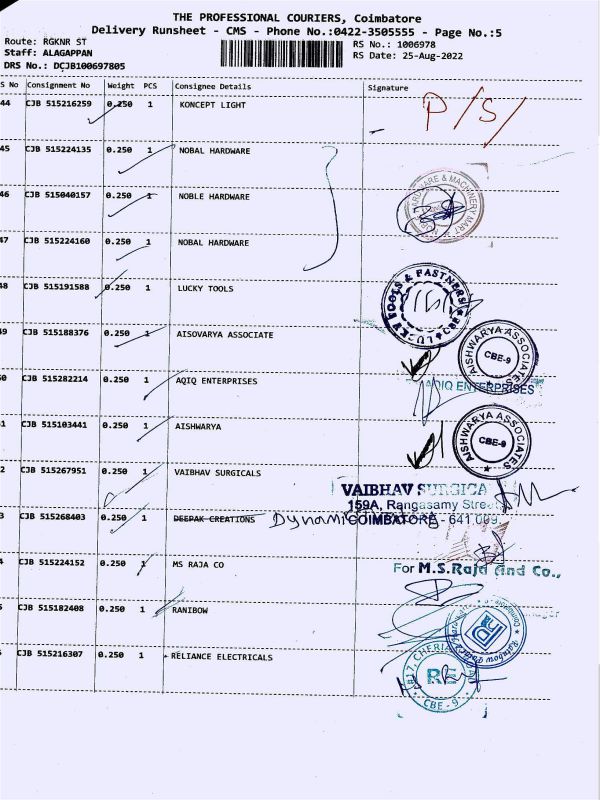 THE PROFESSIONAL COURIERS, Coimbatore
Delivery Runsheet - CMS - Phone No.:0422-3505555 - Page No.:5
Route: RGKNR ST
RS No.: 1006978
Staff: ALAGAPPAN
RS Date: 25-Aug-2022
DRS No.: DCJB100697805
S No Consignment No Weight PCS Consignee Details Signature
44 CJB 515216259 0.250 1 KONCEPT LIGHT P/S/
45 CJB 515224135 0.250 1 NOBAL HARDWARE
46 CJB 515040157 0.250 1 NOBLE HARDWARE
HARDWARE & MACHINERY MART
47 CJB 515224160 0.250 1 NOBAL HARDWARE
48 CJB 515191588 0.250 1 LUCKY TOOLS
LUCKY TOOLS & FASTNERS
49 CJB 515188376 0.250 1 AISOVARYA ASSOCIATE
AISHWARYA ASSOCIATES CBE-9
0 CJB 515282214 0.250 1 AQIQ ENTERPRISES
AQIQ ENTERPRISES
1 CJB 515103441 0.250 1 AISHWARYA
AISHWARYA ASSOCIATES CBE-9
2 CJB 515267951 0.250 1 VAIBHAV SURGICALS
VAIBHAV SURGICA
159A, Rangasamy Street
3 CJB 515268403 0.250 1 DEEPAK CREATIONS
COIMBATORE - 641 009.
4 CJB 515224152 0.250 1 MS RAJA CO
For M.S.Raja and Co.,
CJB 515182408 0.250 1 RANIBOW
CJB 515216307 0.250 1 RELIANCE ELECTRICALS
RE
CBE - 9